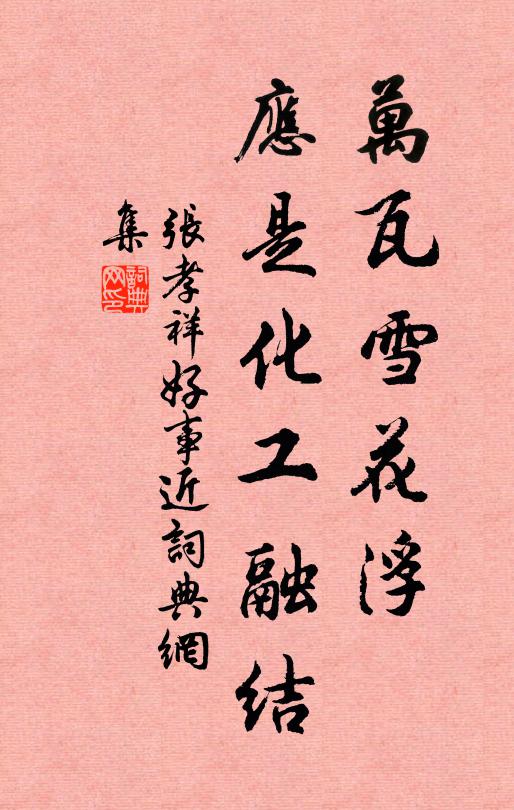 萬瓦雪花浮
應是化工融结
張孝祥好事近詞典網
集
詞典
网印